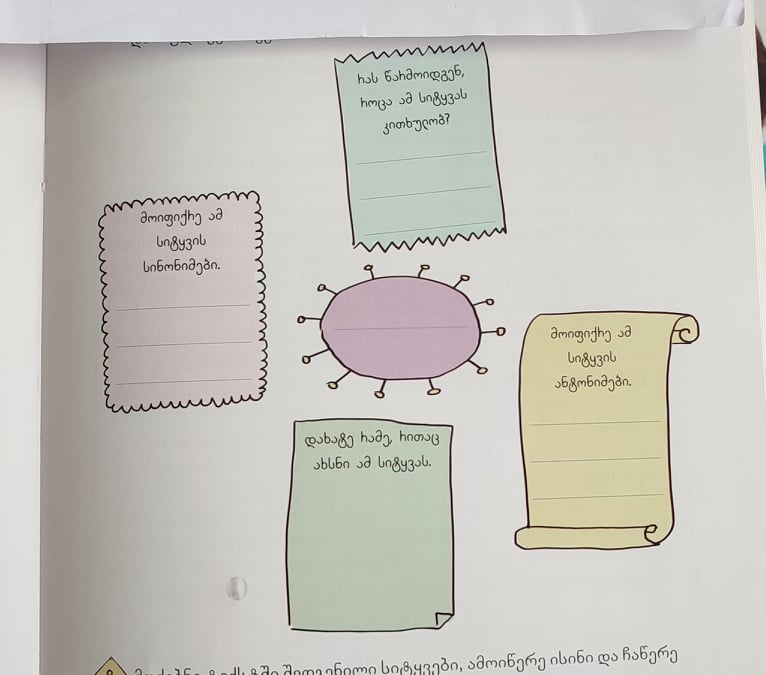 რას წარმოიდგენ,
როცა ამ სიტყვას
კითხულობ?
მოიფიქრე ამ
სიტყვის
სინონიმები.
მოიფიქრე ამ
სიტყვის
ანტონიმები.
დახატე რამე, რითაც
ახსნი ამ სიტყვას.
სიტყვები, ამოიწერე ისინი და ჩაწერე